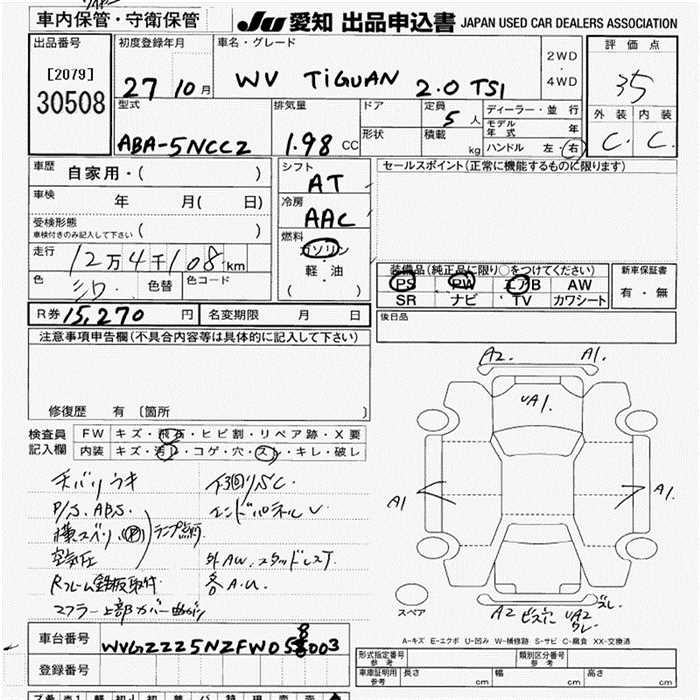 車内保管・守衛保管
JU 愛知 出品申込書 JAPAN USED CAR DEALERS ASSOCIATION
出品番号
[2079]
30508
初度登録年月
27 10月
車名・グレード
WV TiGUAN 2.0 TSI
2WD
・
4WD
評価点
35
外装 内装
C. C.
型式
ABA-5NCCZ
排気量
1.98 CC
ドア
形状
定員
5 人
積載
kg
ディーラー・並行
モデル年式 年
ハンドル 左・右
車歴
自家用・( )
車検
年 月( 日)
受検形態
車検付きのみ記入して下さい ( )
走行
12万4千108km
色
シロ
色替
色コード
シフト
AT
冷房
AAC
燃料
ガソリン
・
軽・油
( )
セールスポイント(正常に機能するものに限ります)
装備品(純正品に限り○をつけてください)
PS PW エアB AW
SR ナビ TV カワシート
新車保証書
有・無
R券 15,270 円
名変期限 月 日
後日品
注意事項申告欄(不具合内容等は具体的に記入して下さい)
修復歴 有〔箇所 〕
検査員記入欄
FW キズ・飛石・ヒビ割・リペア跡・X要
内装 キズ・汚レ・コゲ・穴・スレ・キレ・破レ
P/S. ABS.
空気圧
ランプ点灯
外AW.スタッドレスT
各A.U.
A2. A1.
UA1.
A1
A1.
A2
UA2
スペア
A-キズ E-エクボ U-凹み W-補修跡 S-サビ C-腐食 XX-交換済
車台番号
登録番号
形式指定番号
参考
類別区分番号
参考
車庫証明用
参考
長さ cm
幅 cm
高さ cm